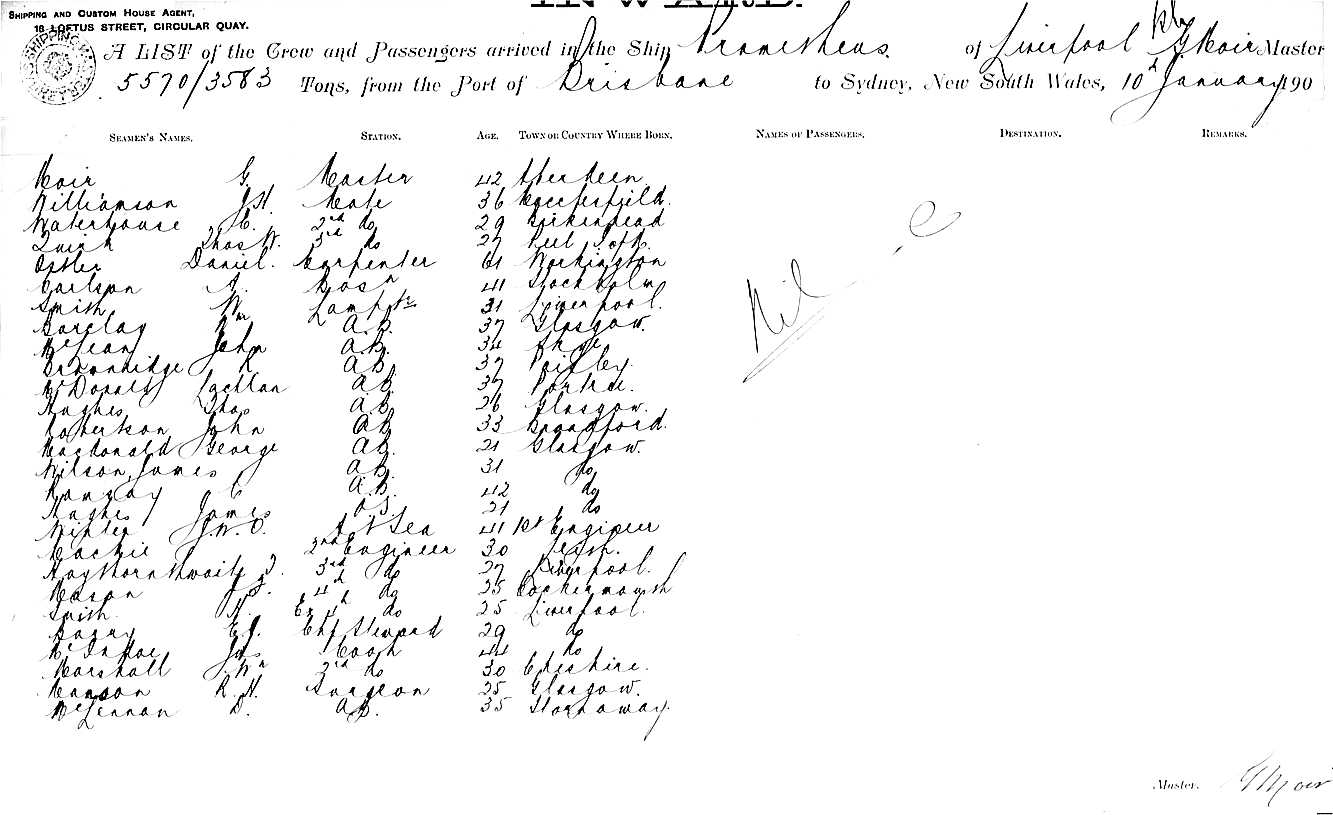 INWARD.
SHIPPING AND CUSTOM HOUSE AGENT,
18 LOFTUS STREET, CIRCULAR QUAY.
A LIST of the Crew and Passengers arrived in the Ship Prometheus of Liverpool G Moir Master
5570/3583 Tons, from the Port of Brisbane to Sydney, New South Wales, 10th January 190
SEAMEN'S NAMES. STATION. AGE. TOWN OR COUNTRY WHERE BORN. NAMES OF PASSENGERS. DESTINATION. REMARKS.
Moir G. Master 42 Aberdeen
Williamson J.H. Mate 36 Macclesfield.
Waterhouse C. 2nd do 29 Birkenhead
Quirk Thos W. 3rd do 27 Peel
Ostler Daniel. Carpenter 61 Workington
Carlson A. Bosn 41 Stockholm
Smith Wm Lamp Tr 31 Liverpool.
Barclay Wm A.B. 37 Glasgow.
McLean John A.B. 34 Skye
Brownridge R A.B. 37 Paisley.
McDonald Lachlan A.B. 37 Portree.
Hughes Thos A.B. 26 Glasgow.
Robertson John A.B. 33 Broadford.
Macdonald George A.B. 21 Glasgow.
Wilson, James A.B. 31 do
Ramsay C A.B. 42 do
Hughes James O.S. 21 do
J.W.O. 1st Sea 41 1st Engineer
Mackie 2nd Engineer 30 Leith.
Haythornthwaite J. 3rd do 27 Liverpool.
Mason J.S. 4th do 25 Cockermouth
Smith H. Ex 4th do 25 Liverpool.
Barry E.J. Chf Steward 29 do
Jas Cook 44 do
Marshall J. Wm 2nd do 30 Cheshire.
Manson R.H. Surgeon 25 Glasgow.
McLennan D. A.B. 35 Stornaway.
Nil
Master. G Moir